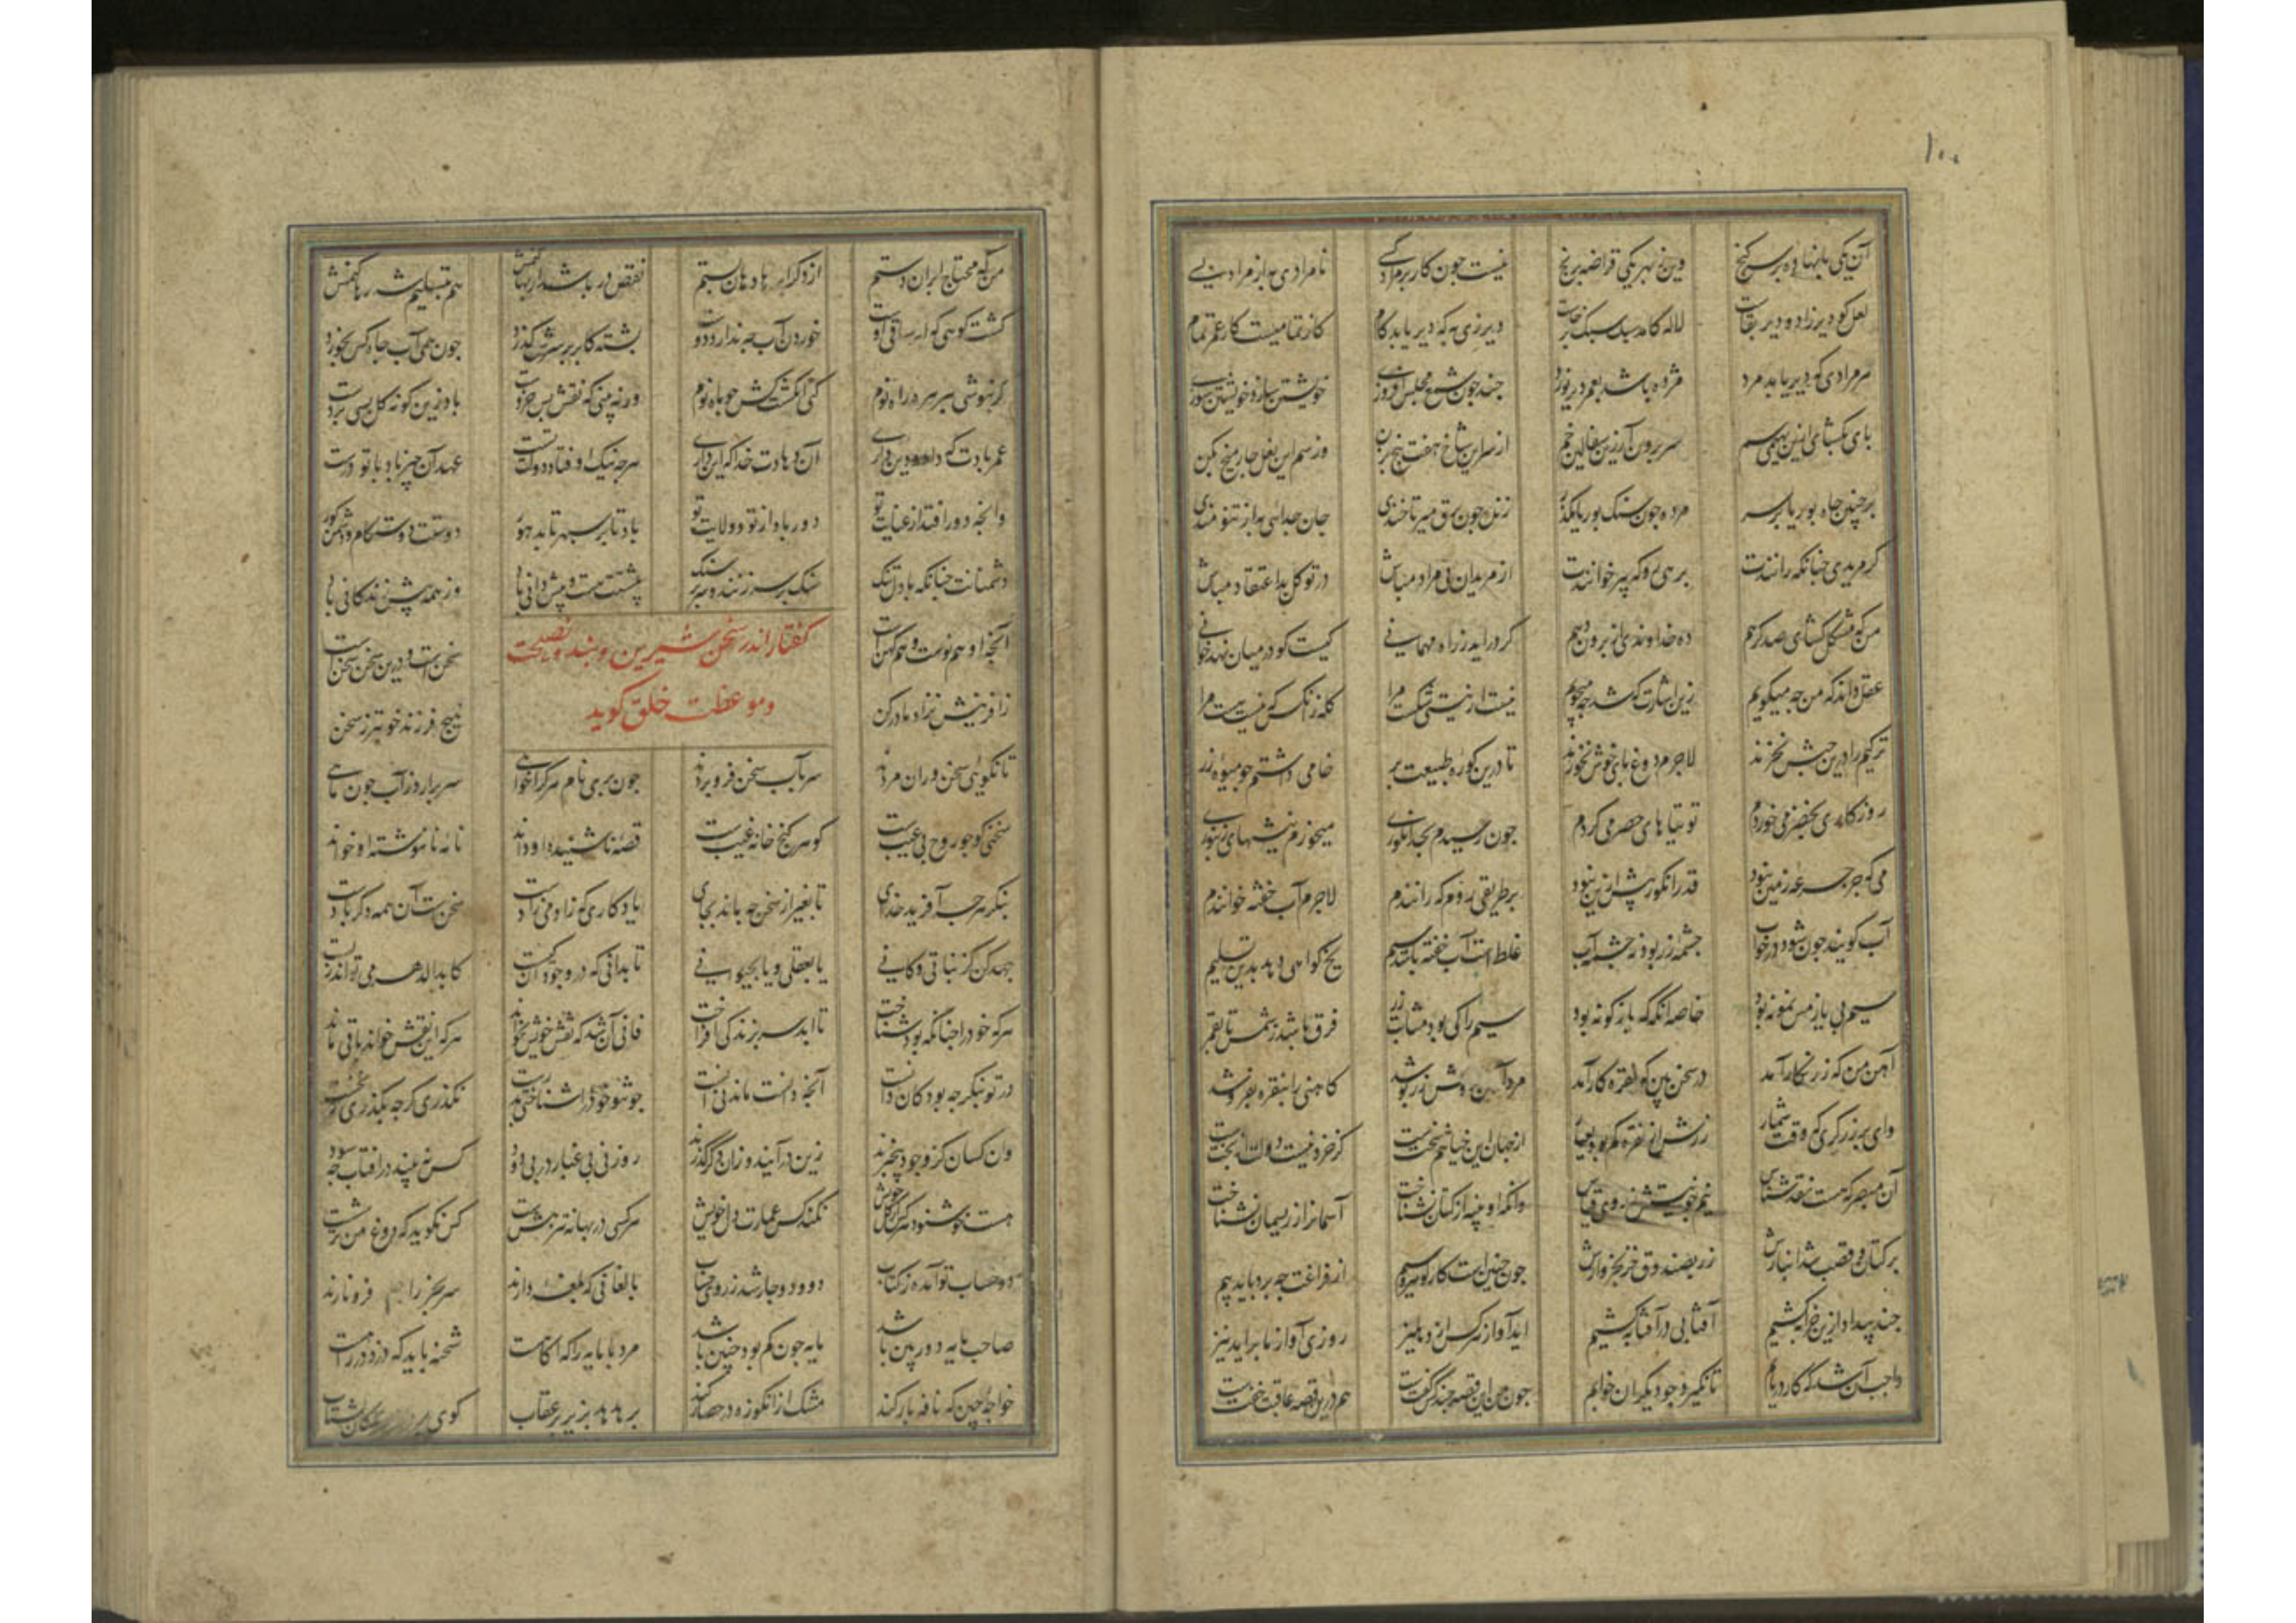 ۱۰۰
آن یکی پا نهاده بر سر کنج وین ز بهر یکی قراضه برنج نیست چون کار بر مراد کسی نامرادی به از مراد بسی
لعل کو دیر زاد و دیر بقاست لاله کامد سبک سبک برخاست دیر زی به که دیر یابد کام کز تمامیست کار عمر تمام
هر مرادی که دیر یابد مرد مژده باشد بعمر دیر نورد چند چون شمع مجلس افروزی خویشتن سازی و خویشتن سوزی
پای بکشای ازین بهیمی سم سر برون آر ازین سفالین خم از سر این شاخ هفت بیخ بزن وز سم این نعل چار میخ بکن
بر چنین چاه بوریا بر سر مرده چون سنک بوریا مکذر زنده چون برق میر تا خندی جان خدایی به از تنومندی
کر مریدی چنانکه رانندت بر رهی رو که پیر خوانندت از مریدان بی مراد مباش در توکل بد اعتقاد مباش
من که مشکل کشای صد کرهم ده خداوند و از برون دهم کر در اید ز راه مهمانی کیست کو در میان نهد خوانی
عقل داند که من چه میکویم زین اشارت که شد چه میجویم نیست از نیستی شکست مرا کله زانکس که هست هست مرا
ترکیم را درین حبش نخرند لاجرم دوغبای خوش نخورند تا درین کوره طبیعت پز خامی داشتم چو میوه رز
روزکارم بحصرمی خورد توتیاهای حصرمی کردم چون رسیدم بحد انکوری میخورم نیشهای زنبوری
می که جز جرعه زمین نبود قدر انکور بیش ازین نبود بر طریقی روم که رانندم لاجرم آب خفته خوانندم
آب کویند چون شود در خواب چشمه زر بود نه چشمه آب غلطست آب خفته باشد سیم یخ کواهی دهد بدین تسلیم
سیم بی یا ز مس نمونه بود خاصه انکه که باژکونه بود سیم را کی بود مثابت زر فرق باشد ز شمس تا بقمر
آهن من که زرنکار آمد در سخن بین که نقره کار آمد مرد آهن فروش زر پوشد کاهنی را بنقره بفروشد
وای بر زرکری که وقت شمار زرش از نقره کم بود بعیار از جهان این خیانتم سختست کز خرد نیست دولت از بختست
آن مبصر که هست نقدشناس نیم جو نیستش ز روی قیاس وانکه او پنبه از کتان نشناخت آسمانرا ز ریسمان نشناخت
بر کتان و قصب شد انبارش زر بصندوق خز بخروارش چون چنین است کار و سیم از فراغت چه برد باید بیم
چند بیداد ازین خرابه کشیم آفتابی در آفتابه کشیم اید آواز هر کس از دهلیز روزی آواز ما براید نیز
واجب آن شد که کار دریابم تا نکیرد چو دیکران خوابم چون من این قصه چند کس کفتست هم درین قصه عاقبت خفتست
من که محتاج ابران دستم از دکرابه باد هان بستم نقص در باشد ار بها کنمش هم بتسلیم شه رها کنمش
کشت کوهی که ابر ساقی اوست خوردن آب چه ندارد دوست پشته کابر بر سرش کذرد چون همی آب چاه کس نخورد
کر نیوشی چو زهره راه نوم کنی انکشت کش چو ماه نوم ورنه بینی که نقش بس خردست باد ازین کونه کل بسی بردست
عمر بادت که داد و دین داری آن دهادت خدا که این داری هرچه نیک اوفتاد دولت تست عهد آن چیز باد با تو درست
وانچه دور افتد از عنایت تو دور باد از تو و ولایت تو باد تا بر سپهر تابد هور دوستت دوستکام و دشمن کور
دشمنانت چنانکه با دل تنک سنک بر سر زنند و سر بر سنک بیشتت هست و بیش دانی باد وز همه بیش زندکانی باد
کفتار اندر سخن شیرین و پند و نصیحت
و موعظت خلق کوید
آنچه او هم نوست و هم کهنست سخن است و درین سخن سخنست
ز افرینش نزاد مادر کن هیچ فرزند خوبتر ز سخن
تا نکویی سخنوران مردند سر بآب سخن فرو بردند چون بری نام هر کرا خواهی سر برارد ز آب چون ماهی
سخنی کو چو روح بی عیبست کوهر کنج خانه غیبست قصه ناشنیده او داند نامه نانوشته او خواند
بنکر از هرچه آفرید خدای تا بغیر از سخن چه ماند بجای یادکاری که زادمی زادست سخنست آن همه دکر بادست
جهد کن کز نباتی و کانی تا بعقلی و یا بحیوانی تا بدانی که در وجود آن چیست کابدالدهر می تواند زیست
هر که خود را چنانکه بود شناخت تا ابد سر بزندکی افراخت فانی آن شد که نقش خویش نخواند هر که این نقش خواند باقی ماند
در تو بنکر چه بود کان دانست آنچه دانست ماند نی آنست چو تو خود را شناختی بدرست نکذری کرچه بکذری ز نخست
وان کسان کز وجود بیخبرند زین در آیند و زان دکر کذرند روز نی بی غبار و در بی دود کس نبیند در آفتاب چه سود
هست خوشنود هر کس از دل خویش نکند کس عمارت دل خویش هر کسی در بهانه تیز هشست کس نکوید که دوغ من ترشست
ده و دو و چار شد ز روی حساب بالغانی که بلغه دارند سر بجز را فرو نارند
صاحب مایه دور بین باشد مایه چون کم بود چنین باشد مرد با مایه را که اکاهست شحنه باید که دزد در راهست
خواجه چین که نافه بار کند مشک از انکوزه در حصار کند پر هدهد بزیر پر عقاب کوی